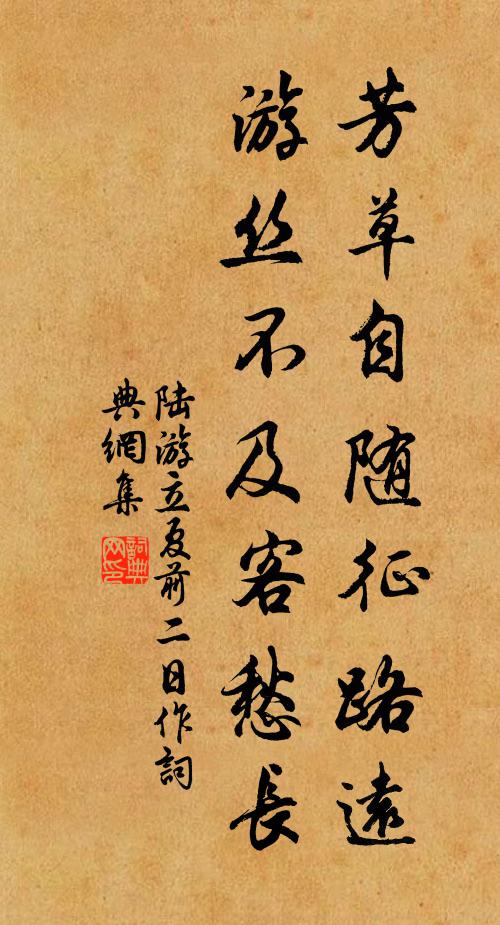 芳草自随征路遠
游丝不及客愁長
陆游立夏前二日作詞
典網集
詞典
网印